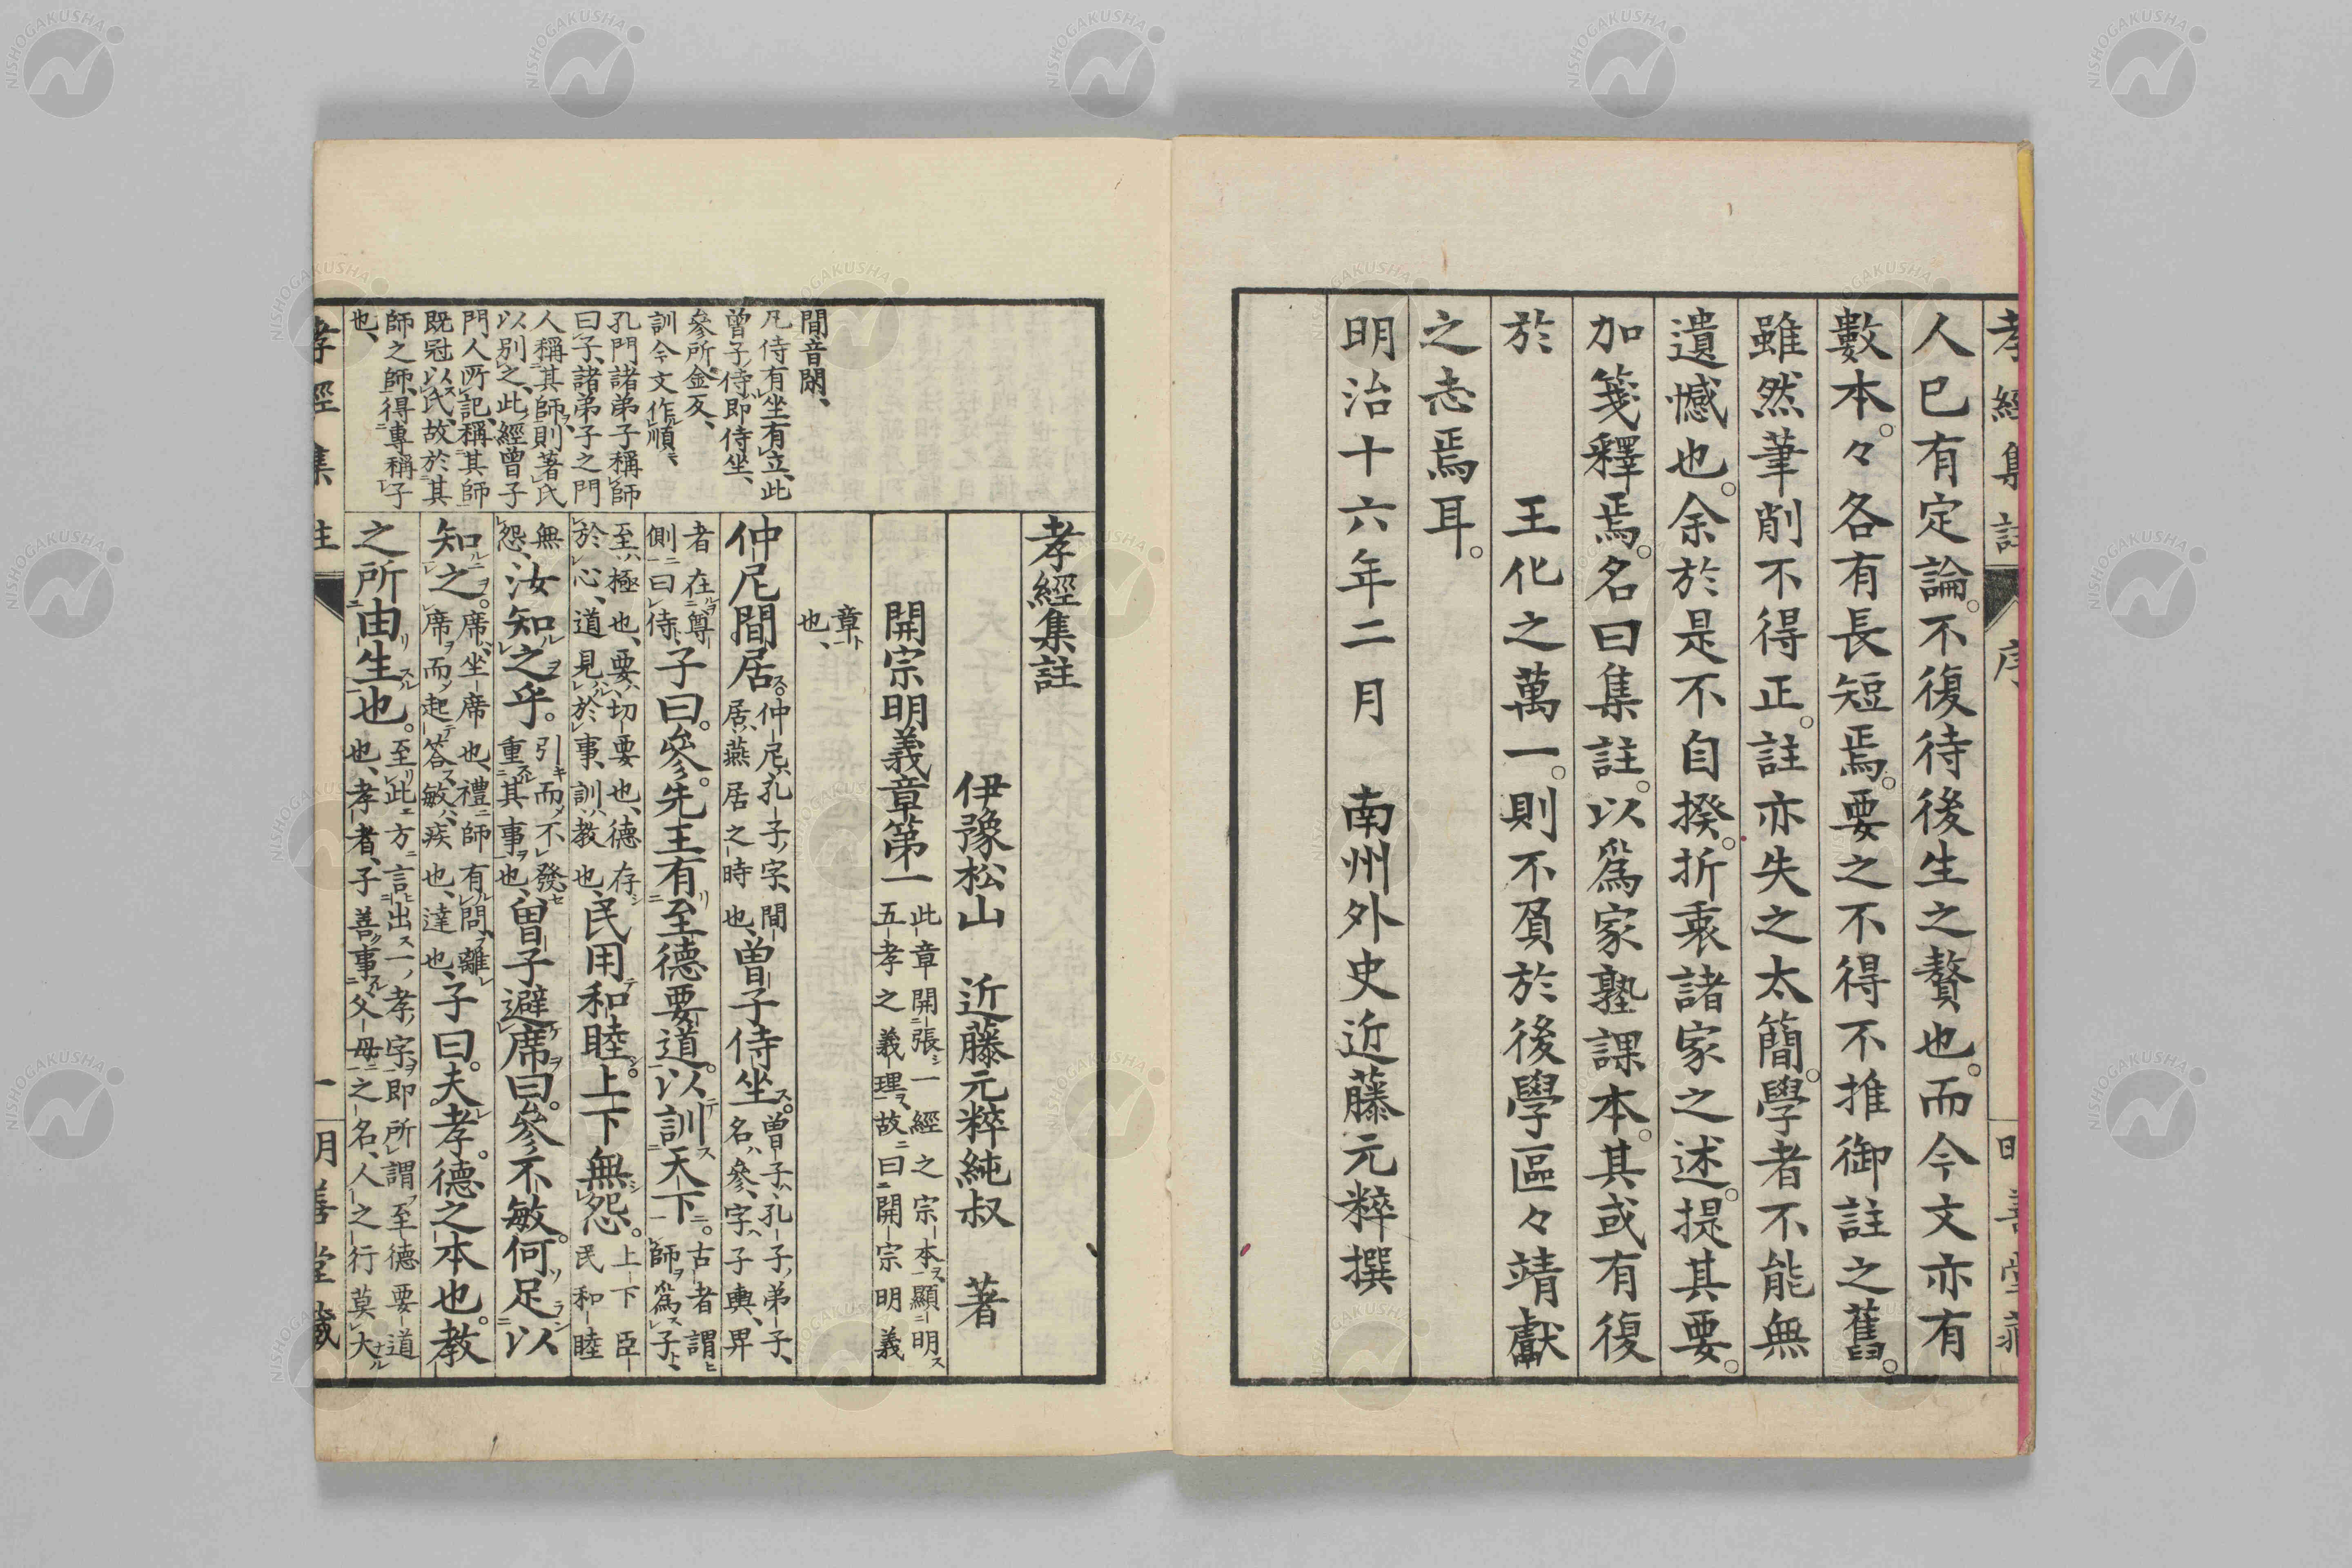 孝經集註
序
明善堂藏
人已有定論。不復待後生之贅也。而今文亦有
數本。々各有長短焉。要之不得不推御註之舊。
雖然筆削不得正。註亦失之太簡。學者不能無
遺憾也。余於是不自揆。折衷諸家之述。提其要。
加箋釋焉。名曰集註。以爲家塾課本。其或有復
於　王化之萬一。則不負於後學區々靖獻
之志焉耳。
明治十六年二月　南州外史近藤元粹撰
孝經集註
伊豫松山　近藤元粹純叔　著
開宗明義章第一
此章開張一經之宗本顯明
五孝之義理故曰開宗明義
章
也、
間音閑、
凡侍有坐有立、此
曾子侍即侍坐、
參所金反、
訓今文作順、
孔門諸弟子稱師
曰子、諸弟子之門
人稱其師、則著氏
以別之、此經曾子
門人所記稱其師
既冠以氏、故於其
師之師、得專稱子
也、
仲尼間居。
仲尼、孔子字、間
居、燕居之時也、
曾子侍坐。
曾子、孔子弟子、
名參、字子輿、卑
者在尊
側曰侍、
子曰。參。先王有至德要道。以訓天下。
古者謂
師爲子、
至、極也、要、切要也、德存
於心、道見於事、訓、教也、
民用和睦。上下無怨。
上下臣
民和睦
無
怨、
汝知之乎。
引而不發、
重其事也、
曾子避席曰。參不敏。何足以
知之。
席、坐席也、禮師有問、離
席而起答、敏、疾也、達也、
子曰。夫孝。德之本也。教
之所由生也。
至此方言出一孝字即所謂至德要道
也、孝者、子善事父母之名、人之行莫大
孝經集註
一
明善堂藏